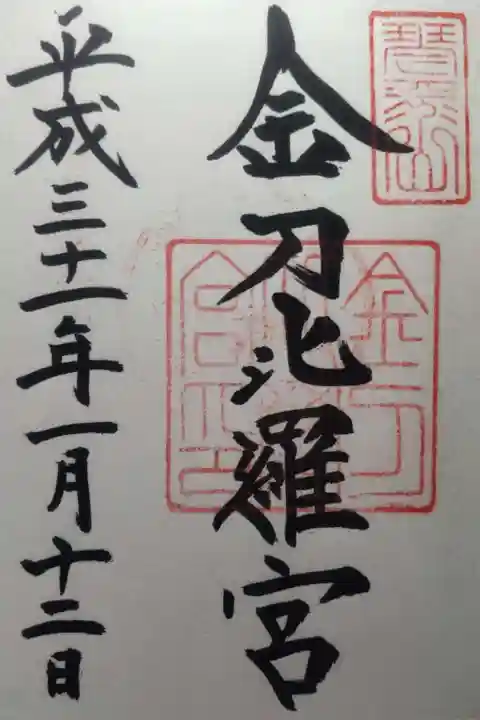 琴平山
金刀比羅宮
平成三十一年一月十二日